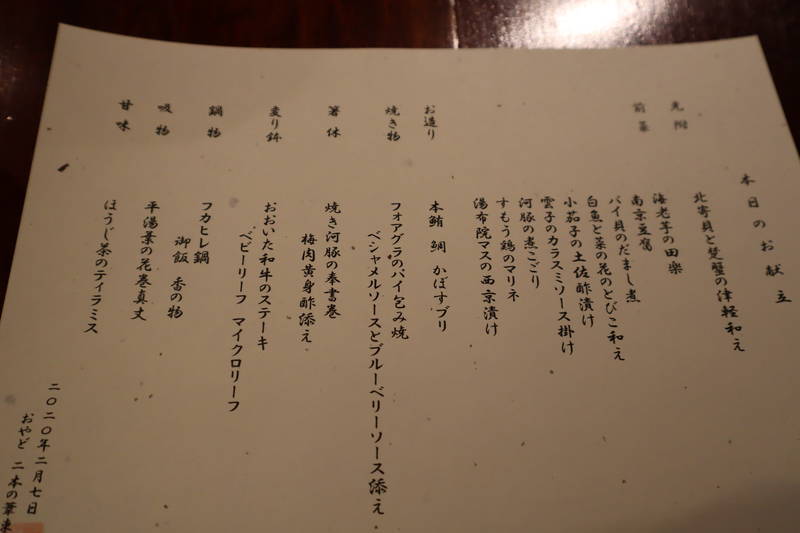 本日のお献立
先附
北寄貝と楚蟹の津軽和え
前菜
海老芋の田楽
南京豆腐
バイ貝のだまし煮
白魚と菜の花のとびこ和え
小茄子の土佐酢漬け
雲子のカラスミソース掛け
河豚の煮こごり
すもう鶏のマリネ
湯布院マスの西京漬け
お造り
本鮪 鯛 かぼすブリ
焼き物
フォアグラのパイ包み焼
ベシャメルソースとブルーベリーソース添え
箸休
焼き河豚の奉書巻
梅肉黄身酢添え
変り鉢
おおいた和牛のステーキ
ベビーリーフ マイクロリーフ
鍋物
フカヒレ鍋
御飯 香の物
吸物
平湯葉の花巻真丈
甘味
ほうじ茶のティラミス
二〇二〇年二月七日
おやど 二本の葦束